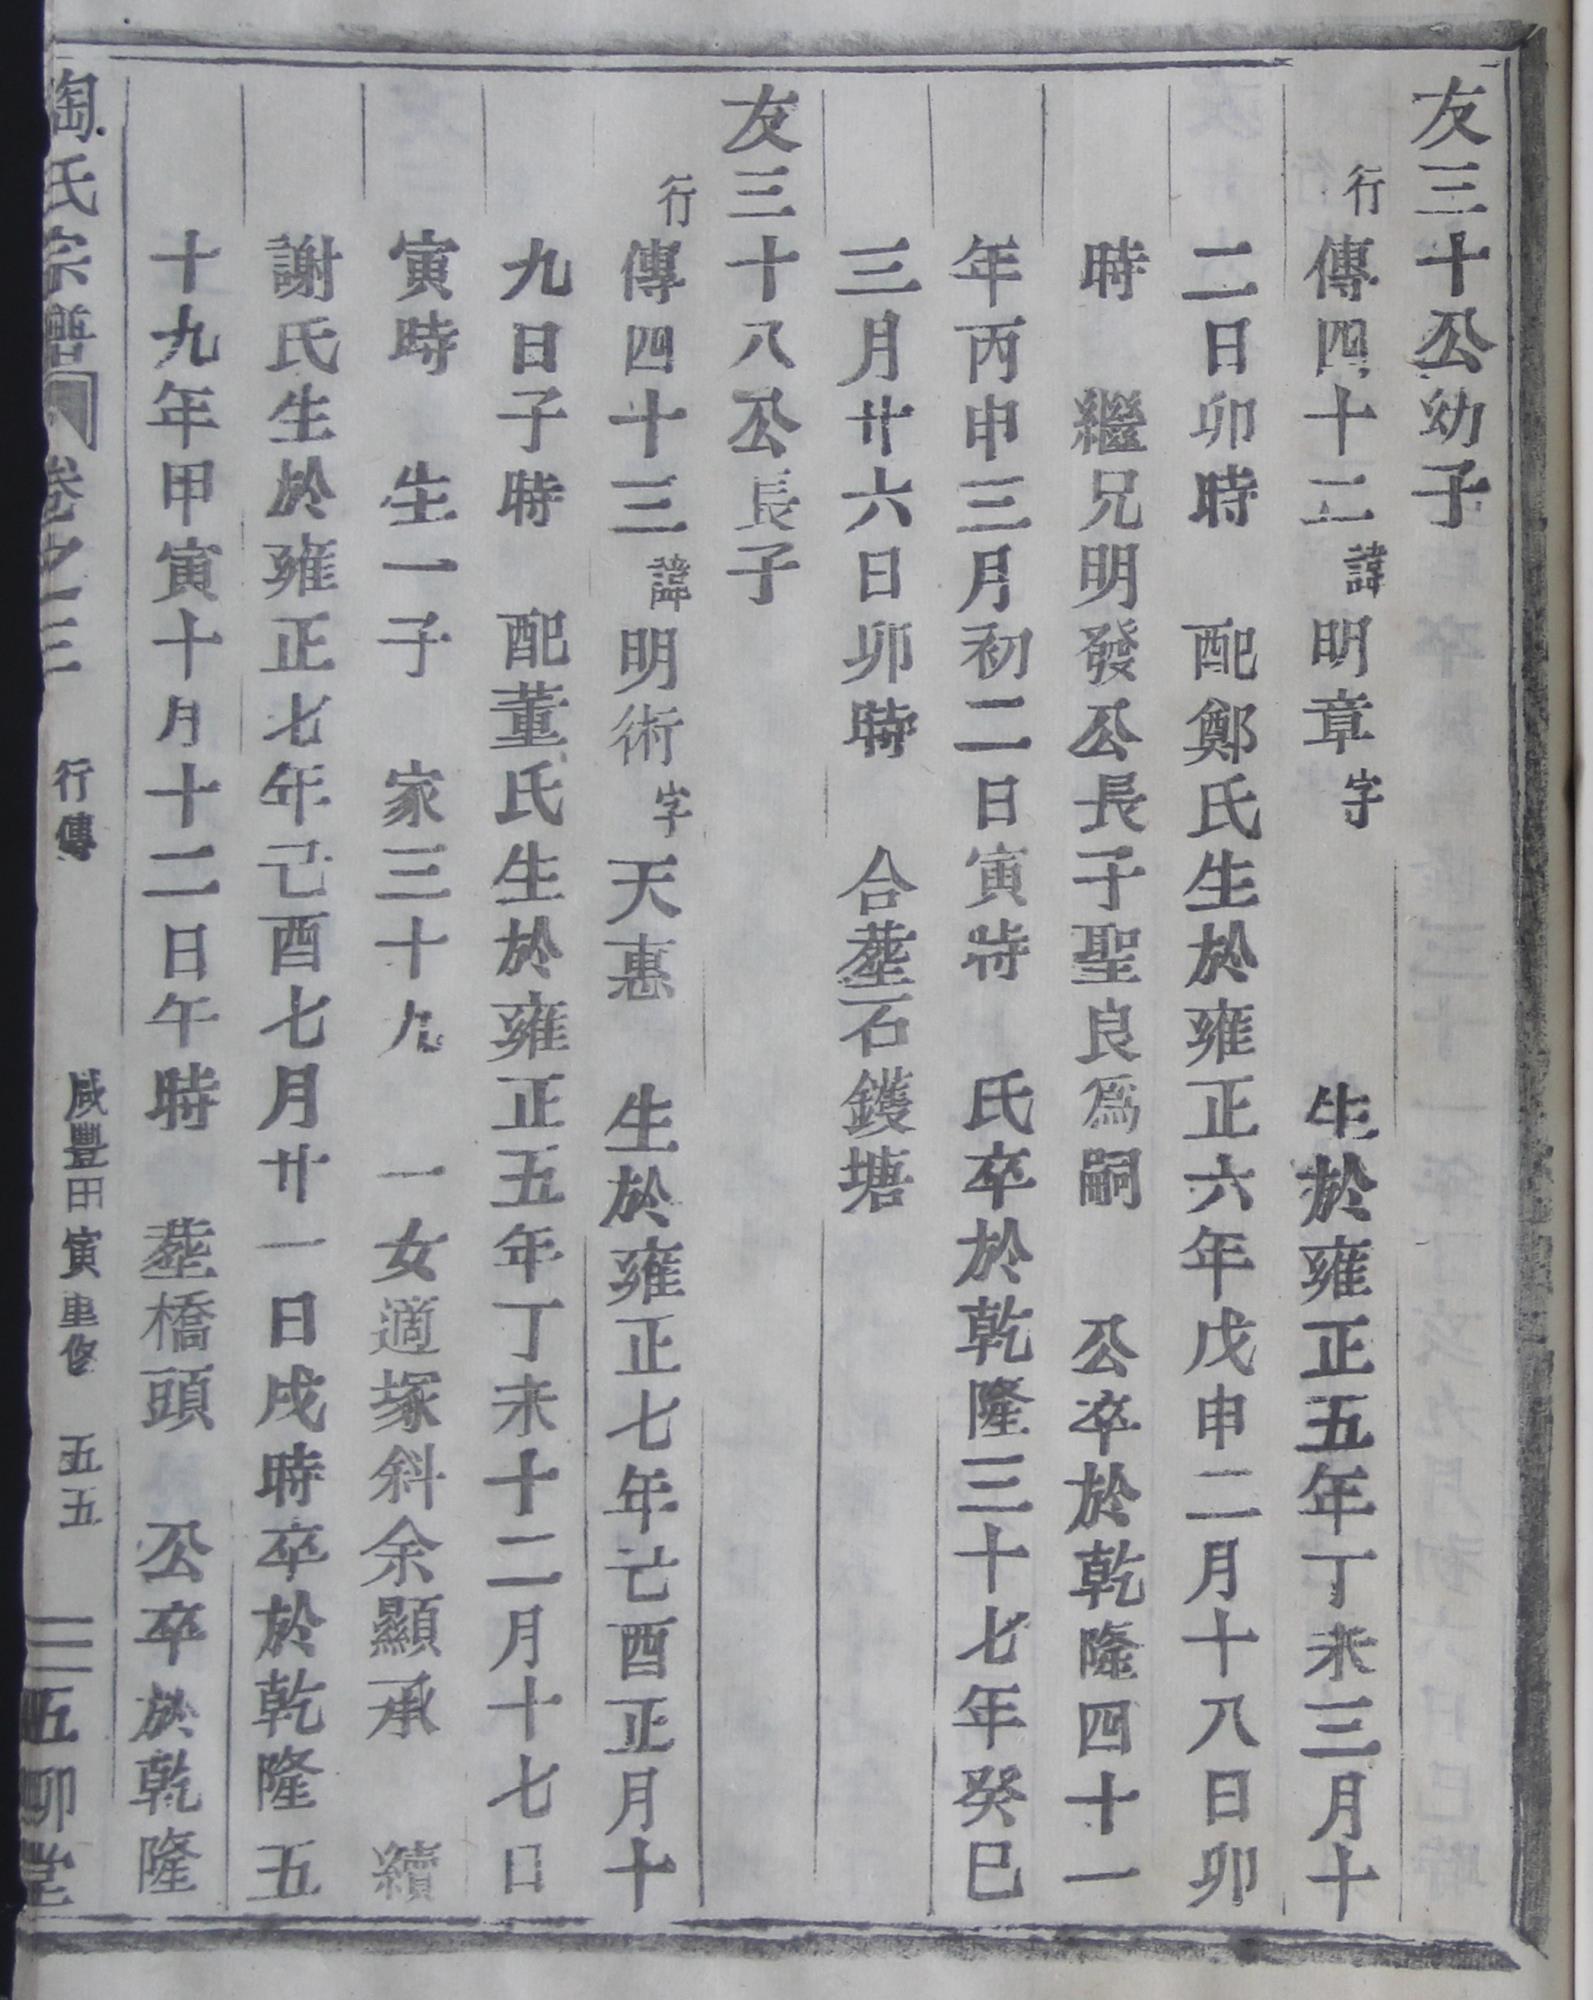 友三十公幼子
行傳四十二諱明章字　生於雍正五年丁未三月十
二日卯時　配鄭氏生於雍正六年戊申二月十八日卯
時　繼兄明發公長子聖良爲嗣　公卒於乾隆四十一
年丙申三月初二日寅時　氏卒於乾隆三十七年癸巳
三月廿六日卯時　合塟石鑊塘
友三十八公長子
行傳四十三諱明術字天惠　生於雍正七年亡酉正月十
九日子時　配董氏生於雍正五年丁未十二月十七日
寅時　生一子　家三十九　一女適塚斜余顯承　續
謝氏生於雍正七年己酉七月廿一日戌時卒於乾隆五
十九年甲寅十月十二日午時　塟橋頭　公卒於乾隆
陶氏宗譜　卷之三　行傳　咸豐甲寅重修　五五　五柳堂